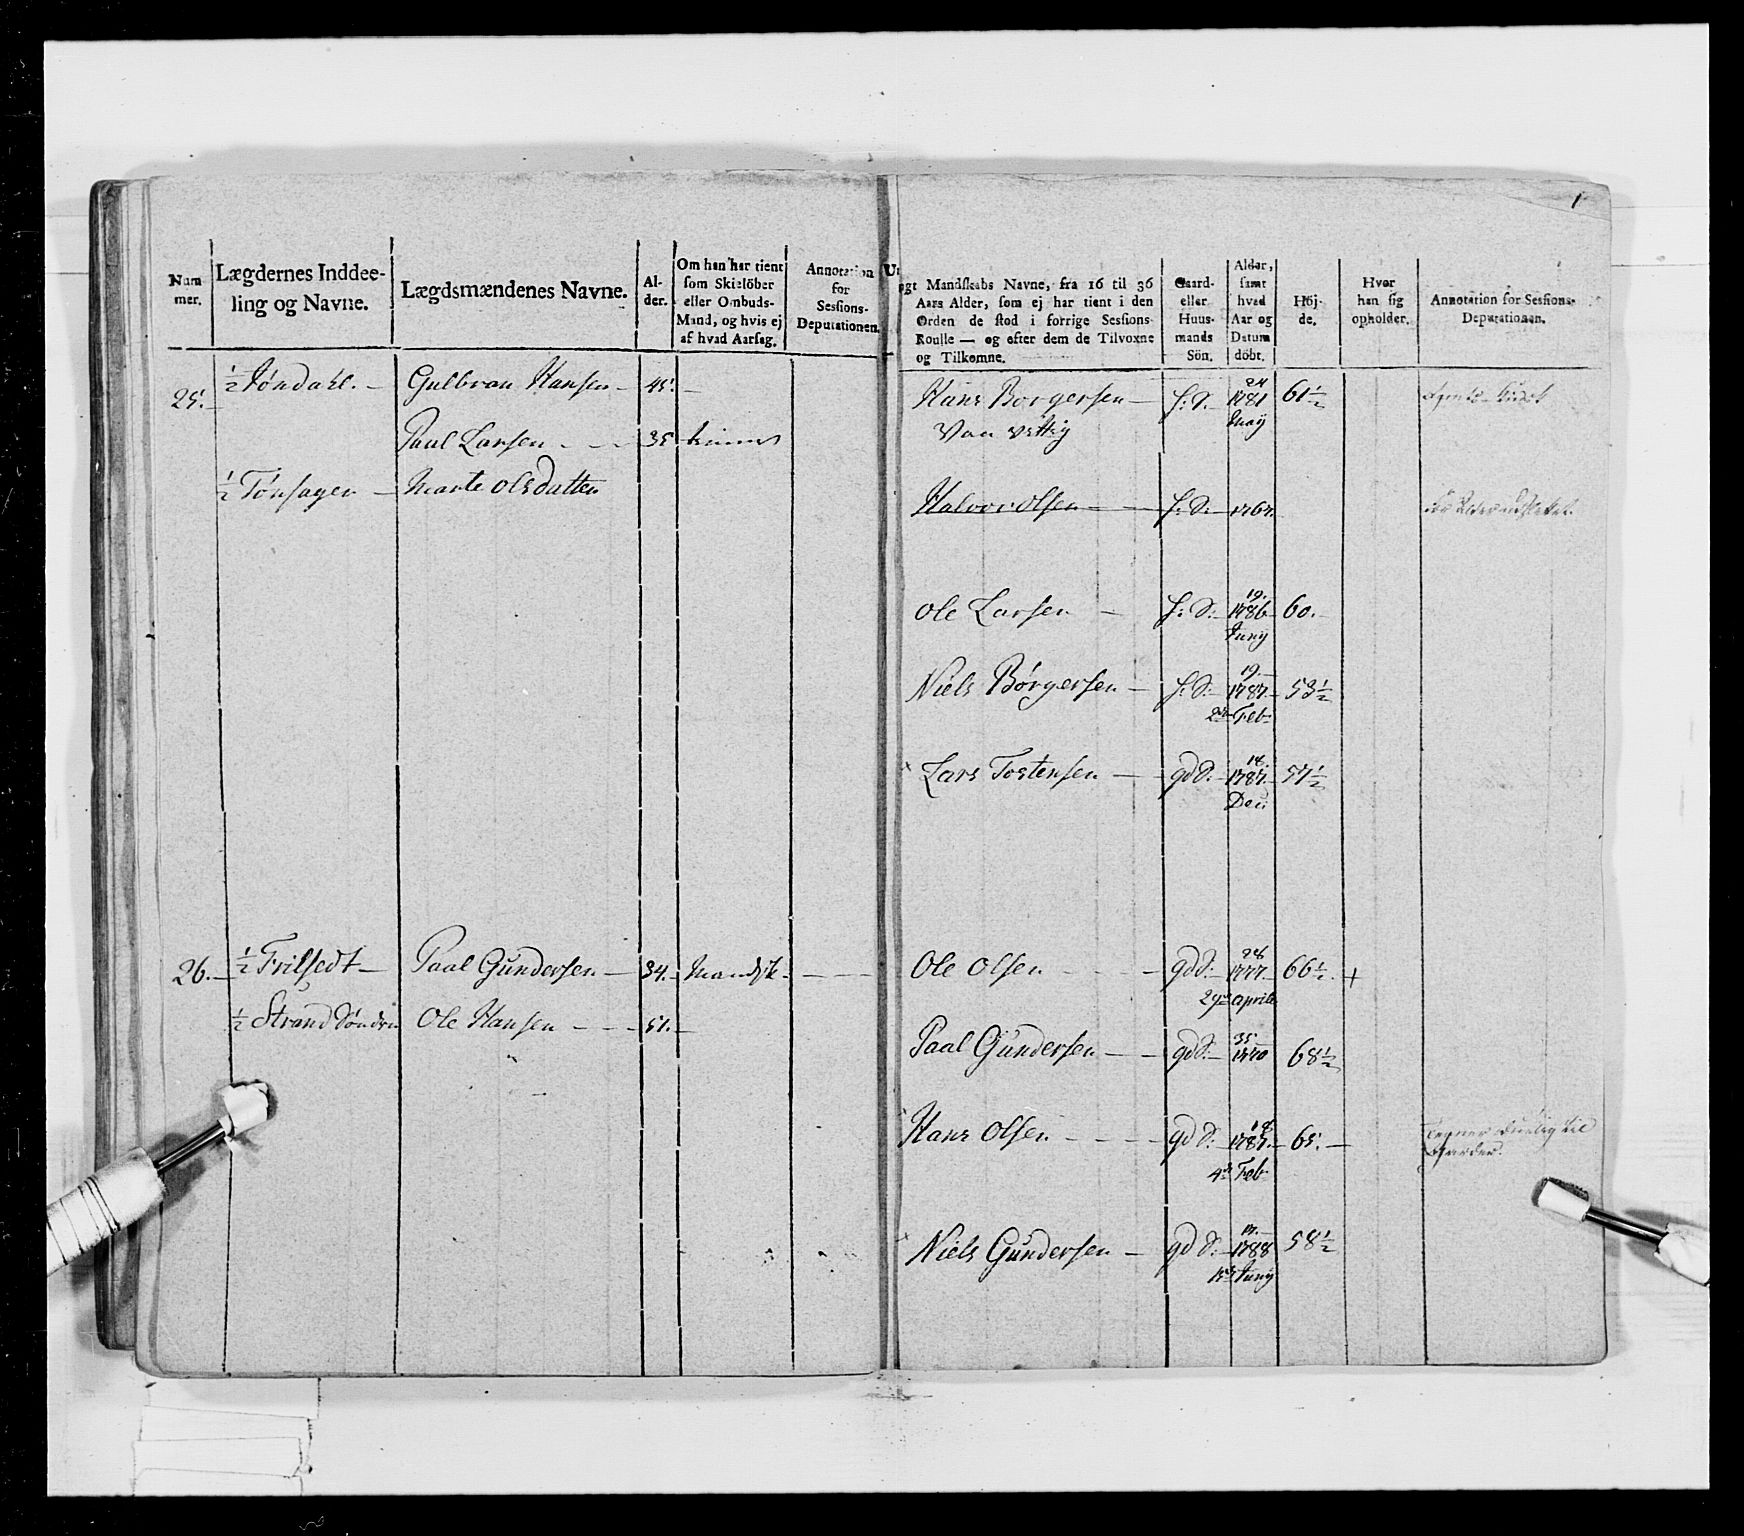 1
Num
mer.
Lægdernes Inddee-
ling og Navne.
Lægdsmændenes Navne.
Al-
der.
Om han har tient
som Skielöber
eller Ombuds-
Mand, og hvis ej
af hvad Aarsag.
Annotation
for
Sessions-
Deputationen.
Ungt Mandskabs Navne, fra 16 til 36
Aars Alder, som ej har tient i den
Orden de stod i forrige Sessions-
Roulle — og efter dem de Tilvoxne
og Tilkomne.
Gaard-
eller
Huus-
mands
Sön.
Alder,
samt
hvad
Aar og
Datum
döbt.
Höj-
de.
Hvor
han sig
opholder.
Annotation for Sessions-
Deputationen.
25. ½ Jöndahl. — Gulbran Hansen — 45. —
Paal Larsen — — 35
½ Tönsager — Marte Olsdatter
Hans Borgersen — h: S. — 24 1781 May 61½
Halvor Olsen — — h: S. — 1767.
Ole Larsen — h: S. — 19. 1786 Juny 60.
Niels Börgersen — h: S. — 19 1787. 2de Feb 53½
Lars Tostensen — gd S. — 18. 1787. Dec 57½
26. — ½ Frilsedt — Paal Gundersen — 34. —
½ Strand Söndre Ole Hansen — — 51. —
Ole Olsen — — gd S. — 28 1777 29de April 66½. +
Paal Gundersen — — gd S. — 35 1770 68½
Hans Olsen — — — gd S. — 18 1787. 4de Feb 65. —
Niels Gundersen — gd S. — 17. 1788 Juny 58½